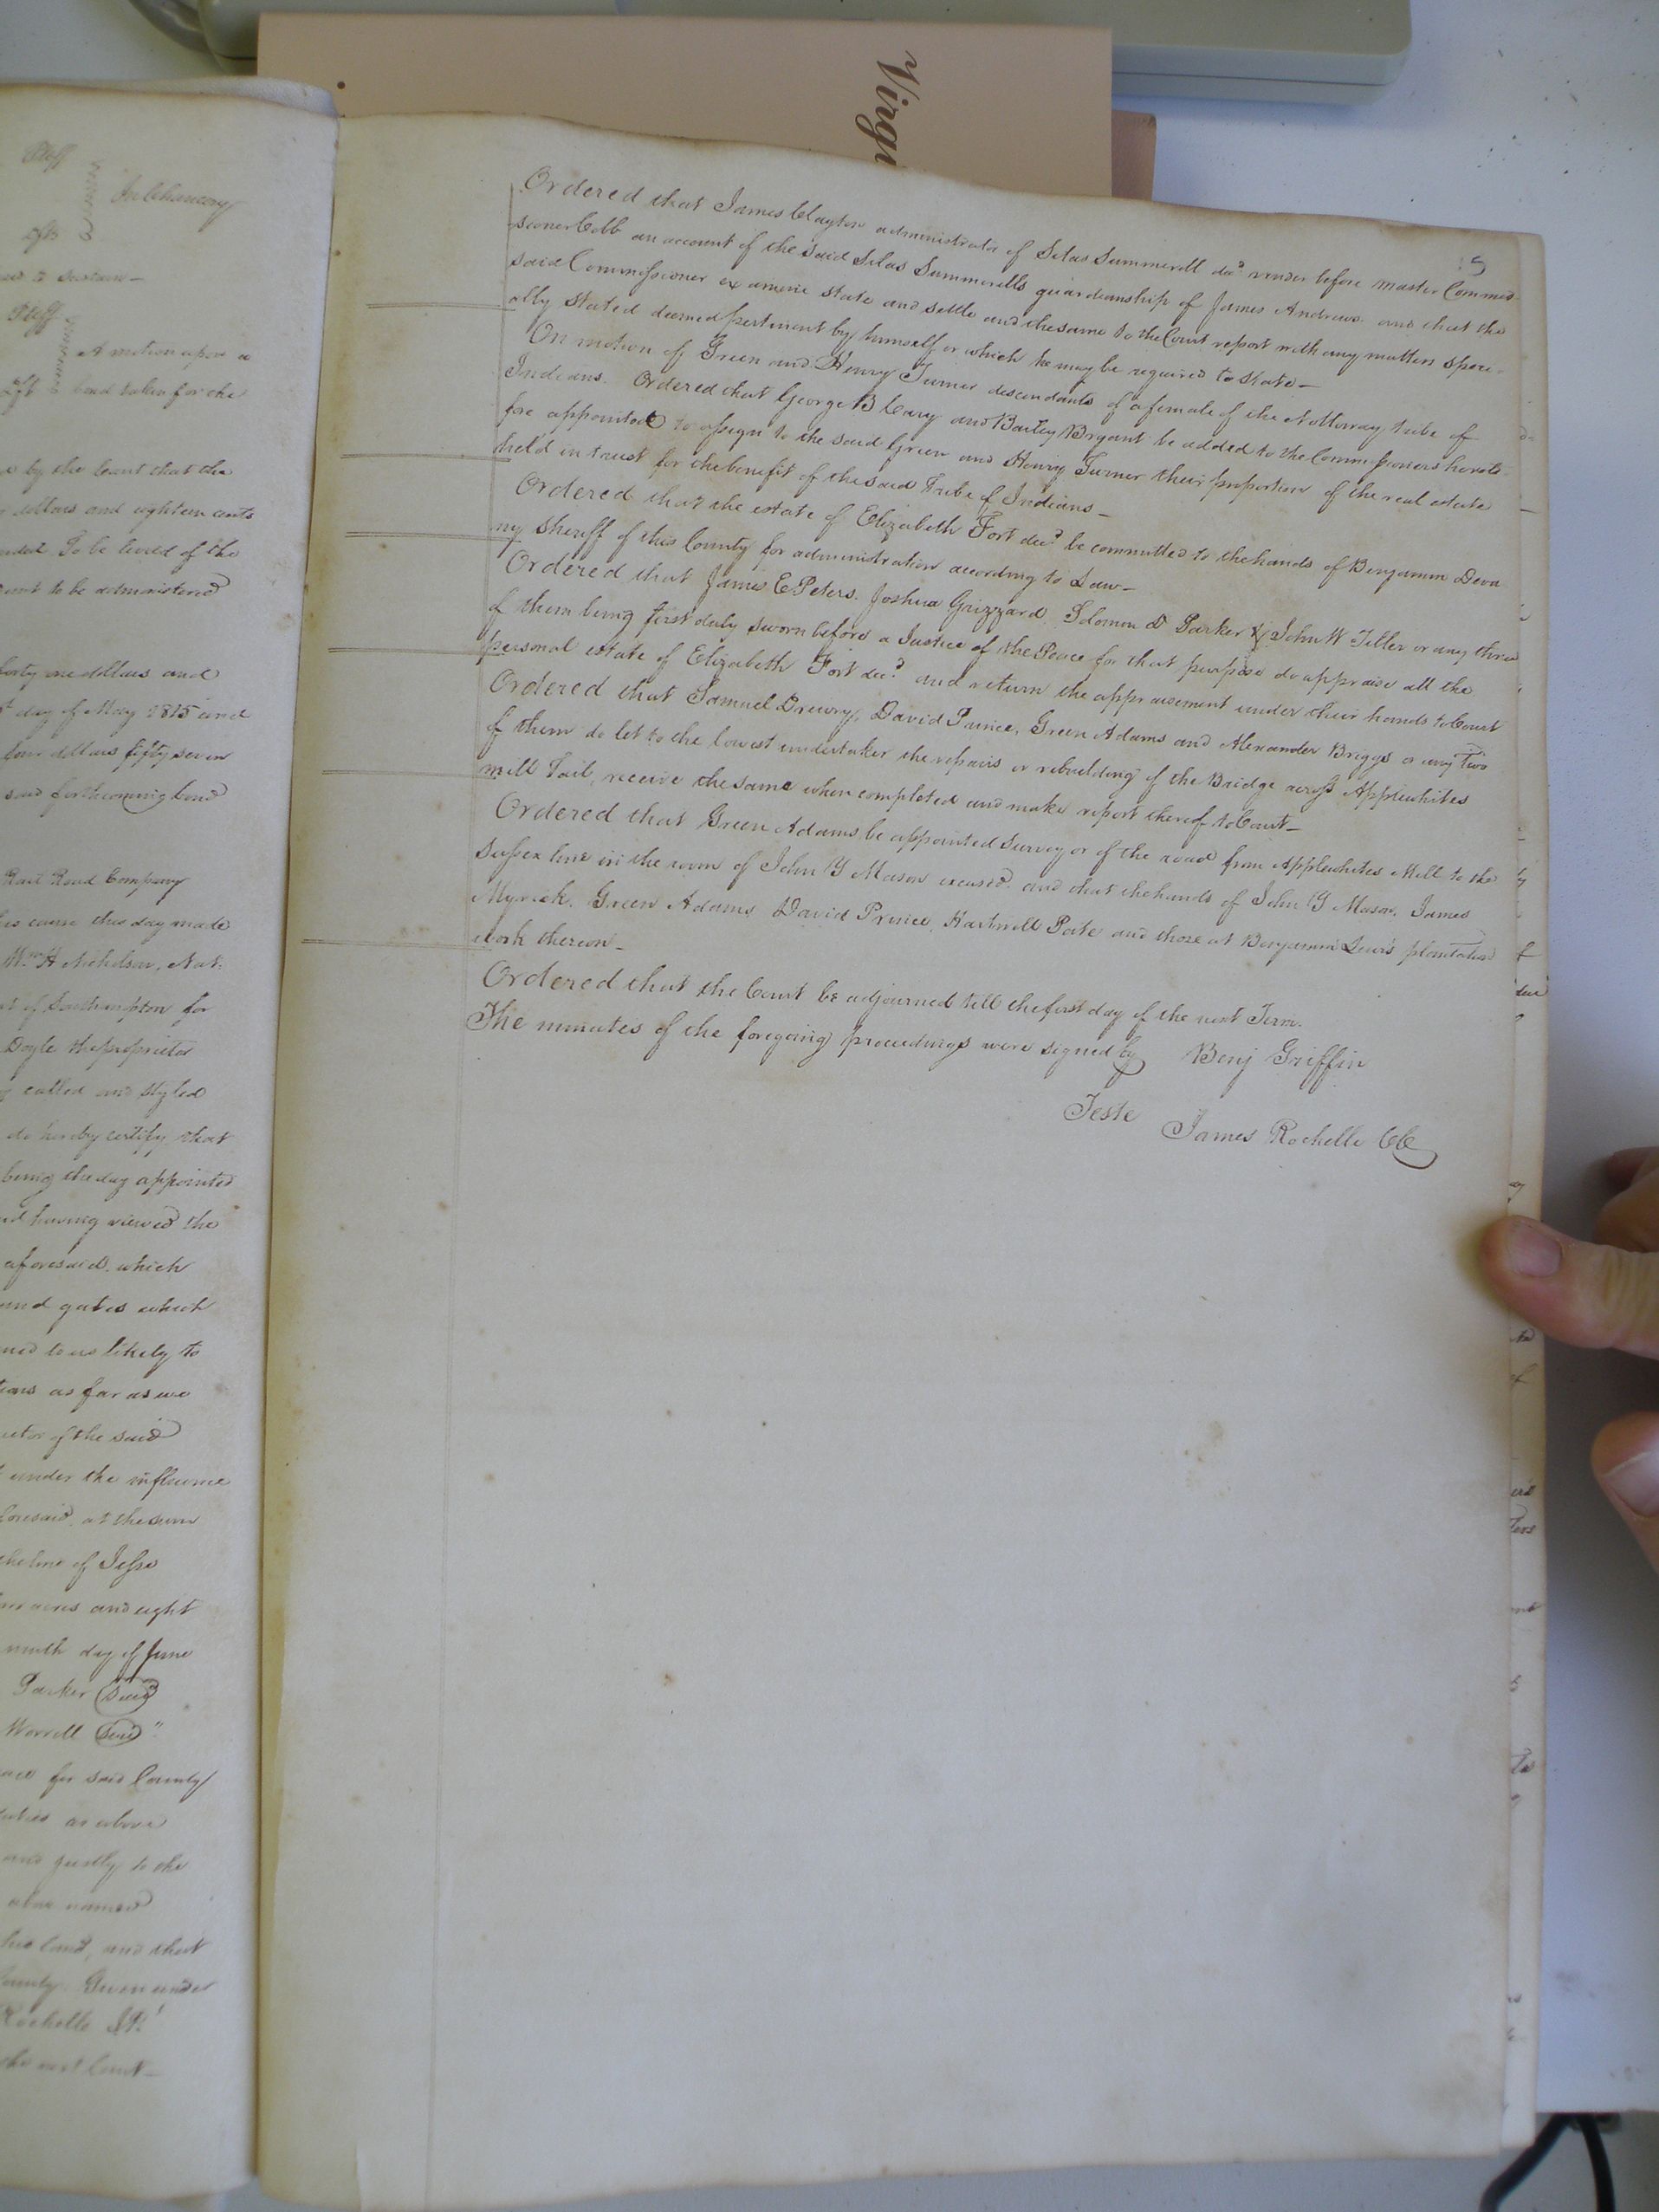 Virgi
Pltff
In Chancery
Dfts
Pltff
A motion upon a
Dft bond taken for the
by the Court that the
dollars and eighteen cents
To be levied of the
to be administered
forty one dollars and
day of May 1815 and
four dollars fifty seven
said forthcoming bond
Rail Road Company
cause this day made
Wm H Nicholson, Nat.
of Southampton for
Doyle the proprietor
called and styled
do hereby certify that
being the day appointed
having viewed the
aforesaid. which
and gates which
to us likely to
as far as we
of the said
under the influence
aforesaid, at the sum
the line of Jesse
acres and eight
ninth day of June
Parker Seal
Worrell Seal "
for said County
as above
and justly to the
above named
land, and that
County Given under
Rochelle J.P.
the next Court_
Ordered that James Clayton administrator of Silas Summerell decd. render before master Commis-
sioner Cobb an account of the said Silas Summerells guardianship of James Andrews. and that the
said Commissioner examine state and settle and the same to the Court report with any matters speci-
ally stated deemed pertinent by himself or which he may be required to state_
On motion of Green and Henry Turner descendants of a female of the Nottoway tribe of
Indians. Ordered that George B Cary and Bailey Bryant be added to the Commissioners hereto-
fore appointed to assign to the said Green and Henry Turner their proportion of the real estate
held in trust for the benefit of the said Tribe of Indians_
Ordered that the estate of Elizabeth Fort decd be committed to the hands of Benjamin Deva
ny Sheriff of this County for administration according to Law_
Ordered that James E Peters. Joshua Grizzard. Solomon D Parker & John W Tiller or any three
of them being first duly sworn before a Justice of the Peace for that purpose do appraise all the
personal estate of Elizabeth Fort decd. and return the appraisement under their hands to Court
Ordered that Samuel Drewry, David Prince, Green Adams and Alexander Briggs or any two
of them do let to the lowest undertaker the repairs or rebuilding of the Bridge across Applewhites
mill Tail, receive the same when completed and make report thereof to Court_
Ordered that Green Adams be appointed Surveyor of the road from Applewhites Mill to the
Sussex line in the room of John Y Mason excused and that the hands of John Y Mason, James
Myrick. Green Adams David Prince, Hartwell Pate and those at Benjamin Lewis plantation
work thereon_
Ordered that the Court be adjourned till the first day of the next Term.
The minutes of the foregoing proceedings were signed by Benj Griffin
Teste
James Rochelle CC